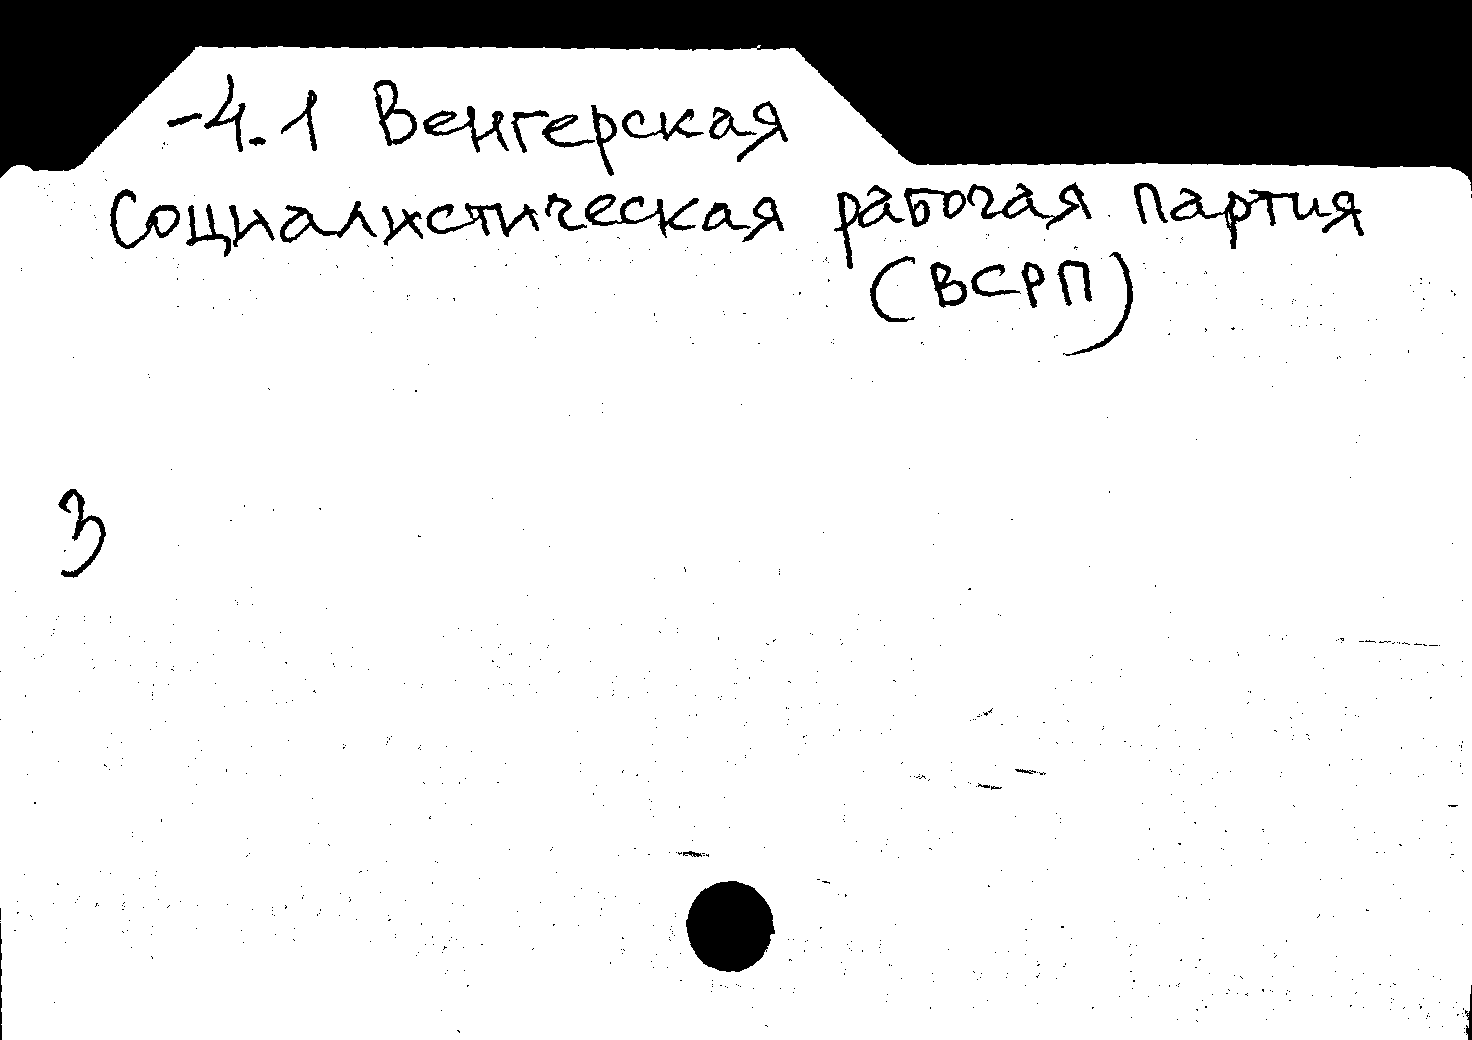 -4.1 Венгерская
социалистическая рабочая партия
(ВСРП)
3